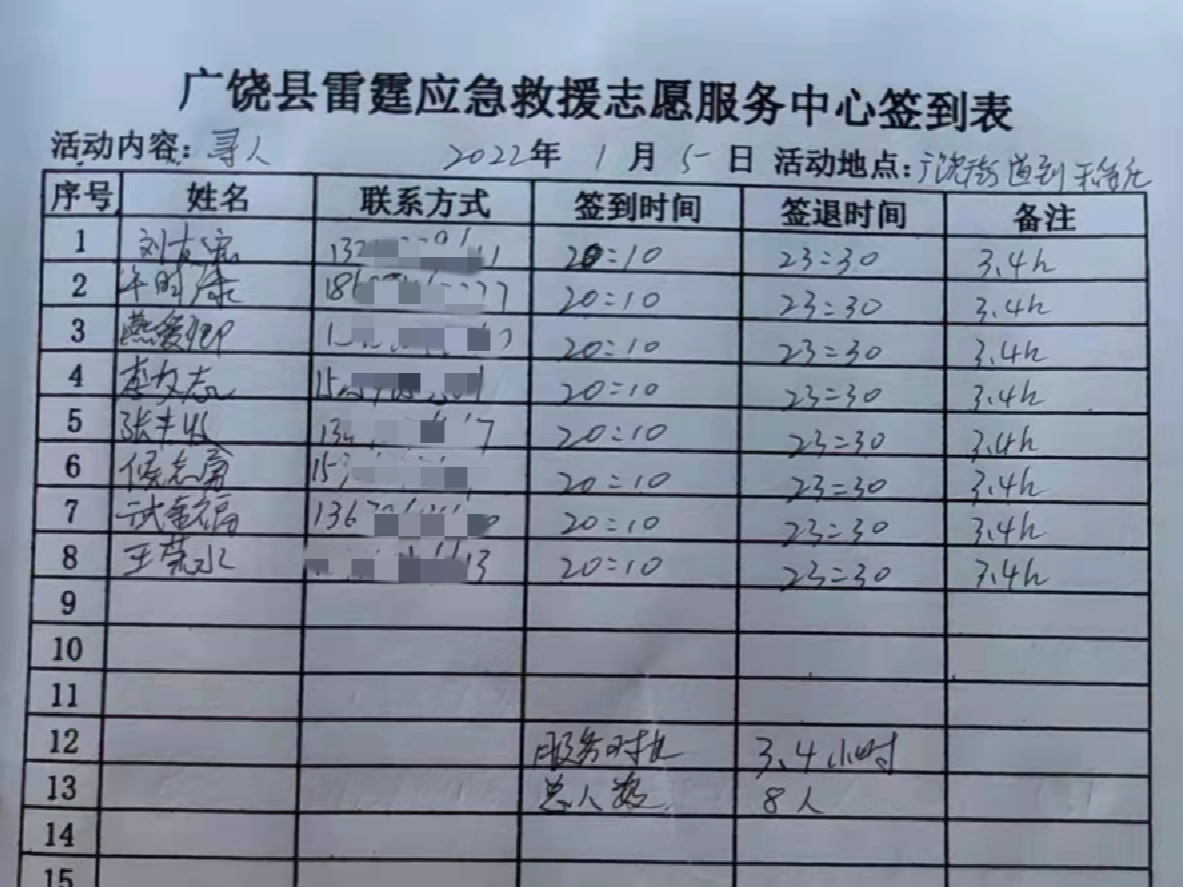 广饶县雷霆应急救援志愿服务中心签到表
活动内容：寻人 2022年 1月 5日 活动地点：广饶街道到
序号 姓名 联系方式 签到时间 签退时间 备注
1 刘友滨 20:10 23:30 3.4h
2 20:10 23:30 3.4h
3 燕爱卿 20:10 23:30 3.4h
4 李文志 20:10 23:30 3.4h
5 张丰收 20:10 23:30 3.4h
6 侯志勇 20:10 23:30 3.4h
7 武重福 136 20:10 23:30 3.4h
8 王荣水 13 20:10 23:30 3.4h
9
10
11
12 服务时长 3.4小时
13 总人数 8人
14
15